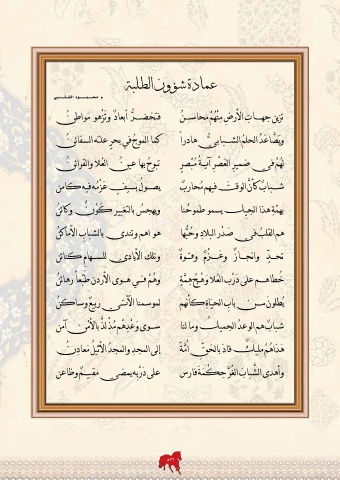 عمادة شؤون الطلبة
د. محمود الشلبي
تزين جهات الأرض منهُم محاسنُ فتخضرُّ أبعادٌ وتزهو مواطنُ
ويصّاعدُ الحلمُ الشبابيُّ هادراً كما الموجُ في بحرٍ علته السفائنُ
لهُمْ في ضميرِ العَصْرِ آيةُ مُبْصِرٍ تبوحُ بها عينُ العُلا والقرائنُ
شبابٌ كأنَّ الوقتَ فيهم مُحاربٌ يصولُ بسيفٍ عَزْمُه فيه كامنُ
بهمّةِ هذا الجيلِ يسمو طموحُنا ويهجسُ بالتغيير كونٌ وكائنُ
هم القلبُ في صَدْرِ البلادِ وحُبُّها هو اهم وتندى بالشبابِ الأماكنُ
تحدٍّ وانجازٌ وعَزْمٌ وقوةٌ وتلك الأيادي للسهامِ كنائنُ
خُطاهم على دَرْبِ العُلا وَهَجُ همَّةٍ وهُمْ في هوى الأردن طبعاً رهائنُ
يُطلون من بابِ الحياةِ كأنهم لموسمنا الآتي ربيعٌ وساكنُ
شبابٌ هم الوعدُ الجميلُ وما لنا سوى وَعْدِهِم مُذْ لذَّ بالأمنِ آمنُ
هَداهُمْ مليكٌ قادَ بالحَقِّ أمَّةً إلى المجدِ والمجدُ الأثيلُ مَعادِنُ
وأهدى الشَّبابَ الغُرَّ حِكْمةَ فارسٍ على دَرْبِه يمضي مقيمٌ وظاعنُ